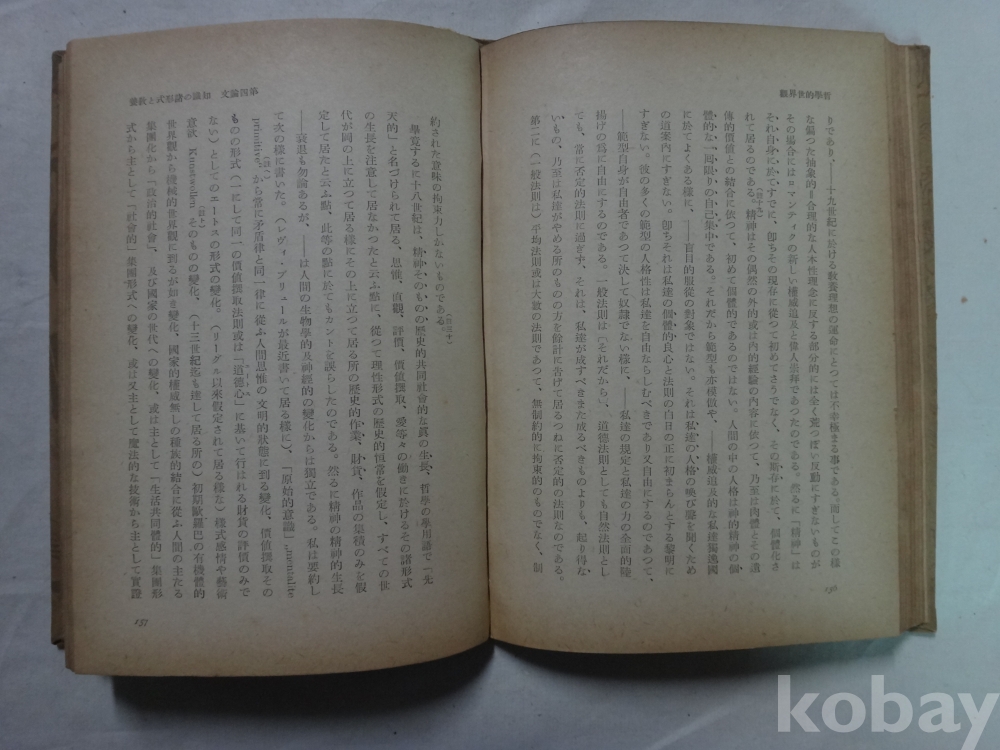 哲學的世界觀
りであり、——十九世紀に於ける敎養理想の運命にとつては不幸極まる事である。而してこの樣
な偏つた抽象的=合理的な人本性理念に反する部分的には全く荒つぽい反動にすぎないものが
その場合にはロマンティクの新しい權威追及と偉人崇拜であつたのである。然るに「精神」は
それ自身に於てすでに、卽ちその現存に從つて初めてさうでなく、その斯存に於て、個體化さ
れて居るのである。精神はその偶然の外的或は內的經驗の內容に依つて、乃至は肉體とその遺
傳的價値との結合に依つて、初めて個體的であるのではない。人間の中の人格は神的精神の個
體的な一回限りの自己集中である。それだから範型も亦模倣や、——權威追及的な私達獨逸國
に於てよくある樣に、——盲目的服從の對象ではない。それは私達の人格の喚び聲を聞くため
の道案內にすぎない。卽ちそれは私達の個體的良心と法則の白日の正に初まらんとする黎明に
すぎない。彼の多くの範型の人格性は私達を自由ならしむべきであり又自由にするのであつて、
——範型自身が自由者であつて決して奴隷でない樣に、——私達の規定と私達の力の全面的陸
揚げの爲に自由にするのである。一般法則は(それだから)、道德法則としても自然法則とし
ても、常に否定的法則に過ぎず、それは、私達が成すべきまた成るべきものよりも、起り得な
いもの、乃至は私達がやめる所のものの方を餘計に告げて居るつねに否定的の法則なのである。
第二に(一般法則は)平均法則或は大數の法則であつて、無制約的に拘束的のものでなく、制
156
第四論文 知識の諸形式と敎養
約された意味の拘束力しかないものである。(三十)
學竟するに十八世紀は、精神そのもの歷史的共同社會的な眞の生長、哲學の學用語で「先
天的」と名づけられて居る、思惟、直觀、評價、價値撰取、愛等々の働きに於けるその諸形式
の生長を注意して居なかつたと云ふ點に、從つて理性形式の歷史的恒常を假定し、すべての世
代が同の上に立つて居る樣にその上に立つて居る所の歷史的作業、財貨、作品の集積のみを假
定して居たと云ふ點、此等の點に於てもカントを誤らしたのである。然るに精神の精神的生長
——衰退も勿論あるが、——は人間の生物學的及神經的の變化からは獨立である。私は要約し
て次の樣に書いた。(レヴィ・ブリュールが最近書いて居る樣に)、「原始的意識」„mentalite
primitive“から常に矛盾律と同一律に從ふ人間思惟の文明的狀態に到る變化、價値撰取その
もの形式(一にして同一の價値撰取法則或は「道德心」に基いて行はれる財貨の評價のみで
ない)としてのエートスの形式の變化。(リーグル以來假定されて居る樣な)樣式感情や藝術
意欲 Kunstwollen そのものの變化、(十三世紀迄も達して居る所の)初期歐羅巴の有機體的
世界觀から機械的世界觀に到るが如き變化、國家的權威無しの種族的結合に從ふ人間の主たる
集團化から「政治的社會」、及び國家の世代への變化、或は主として「生活共同體的」集團形
式から主として「社會的」集團形式への變化、或は又主として魔法的な技術から主として實證
157
kobay